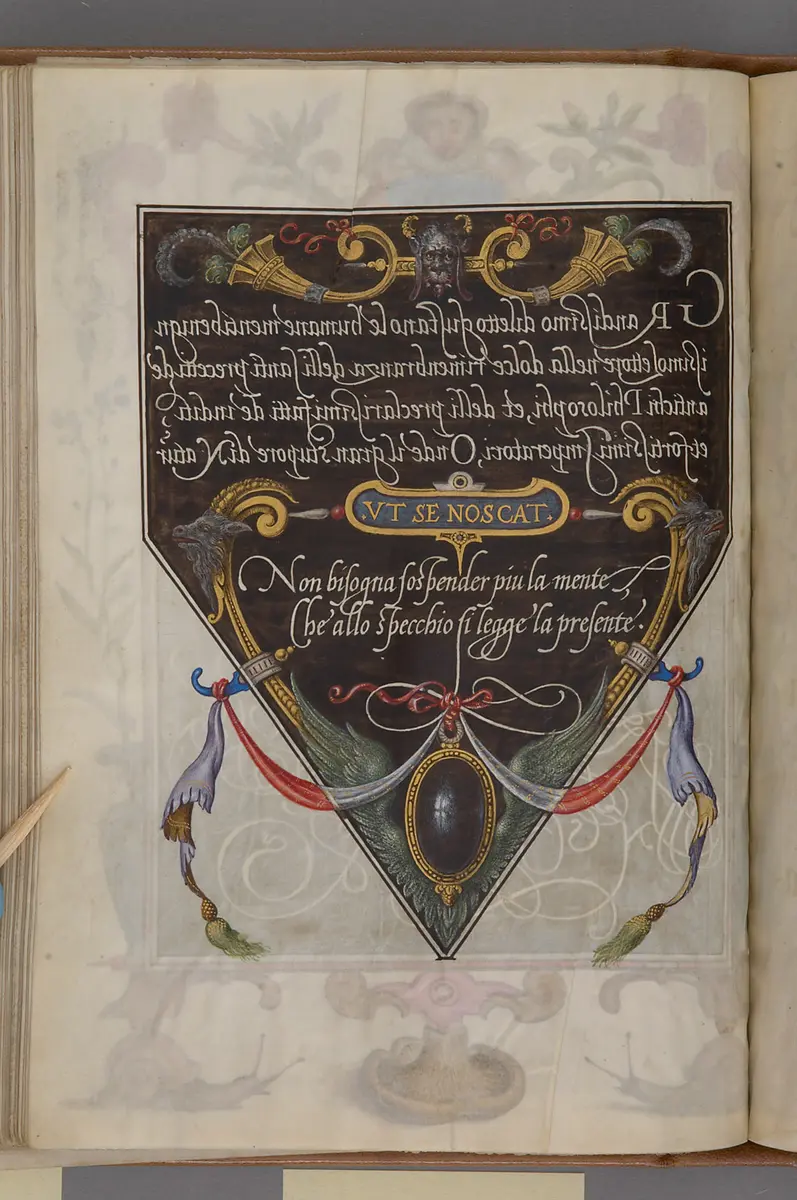 GRandissimo diletto gustano le humane menti benign
issimo lettore nella dolce rimenbranza delli santi precetti de
antichi Philosophi, et delli preclarissimi fatti de inditi
et fortissimi Imperatori, Onde il gran stupore di Natur
VT SE NOSCAT.
Non bisogna sospender piu la mente
Che allo specchio si legge la presente.